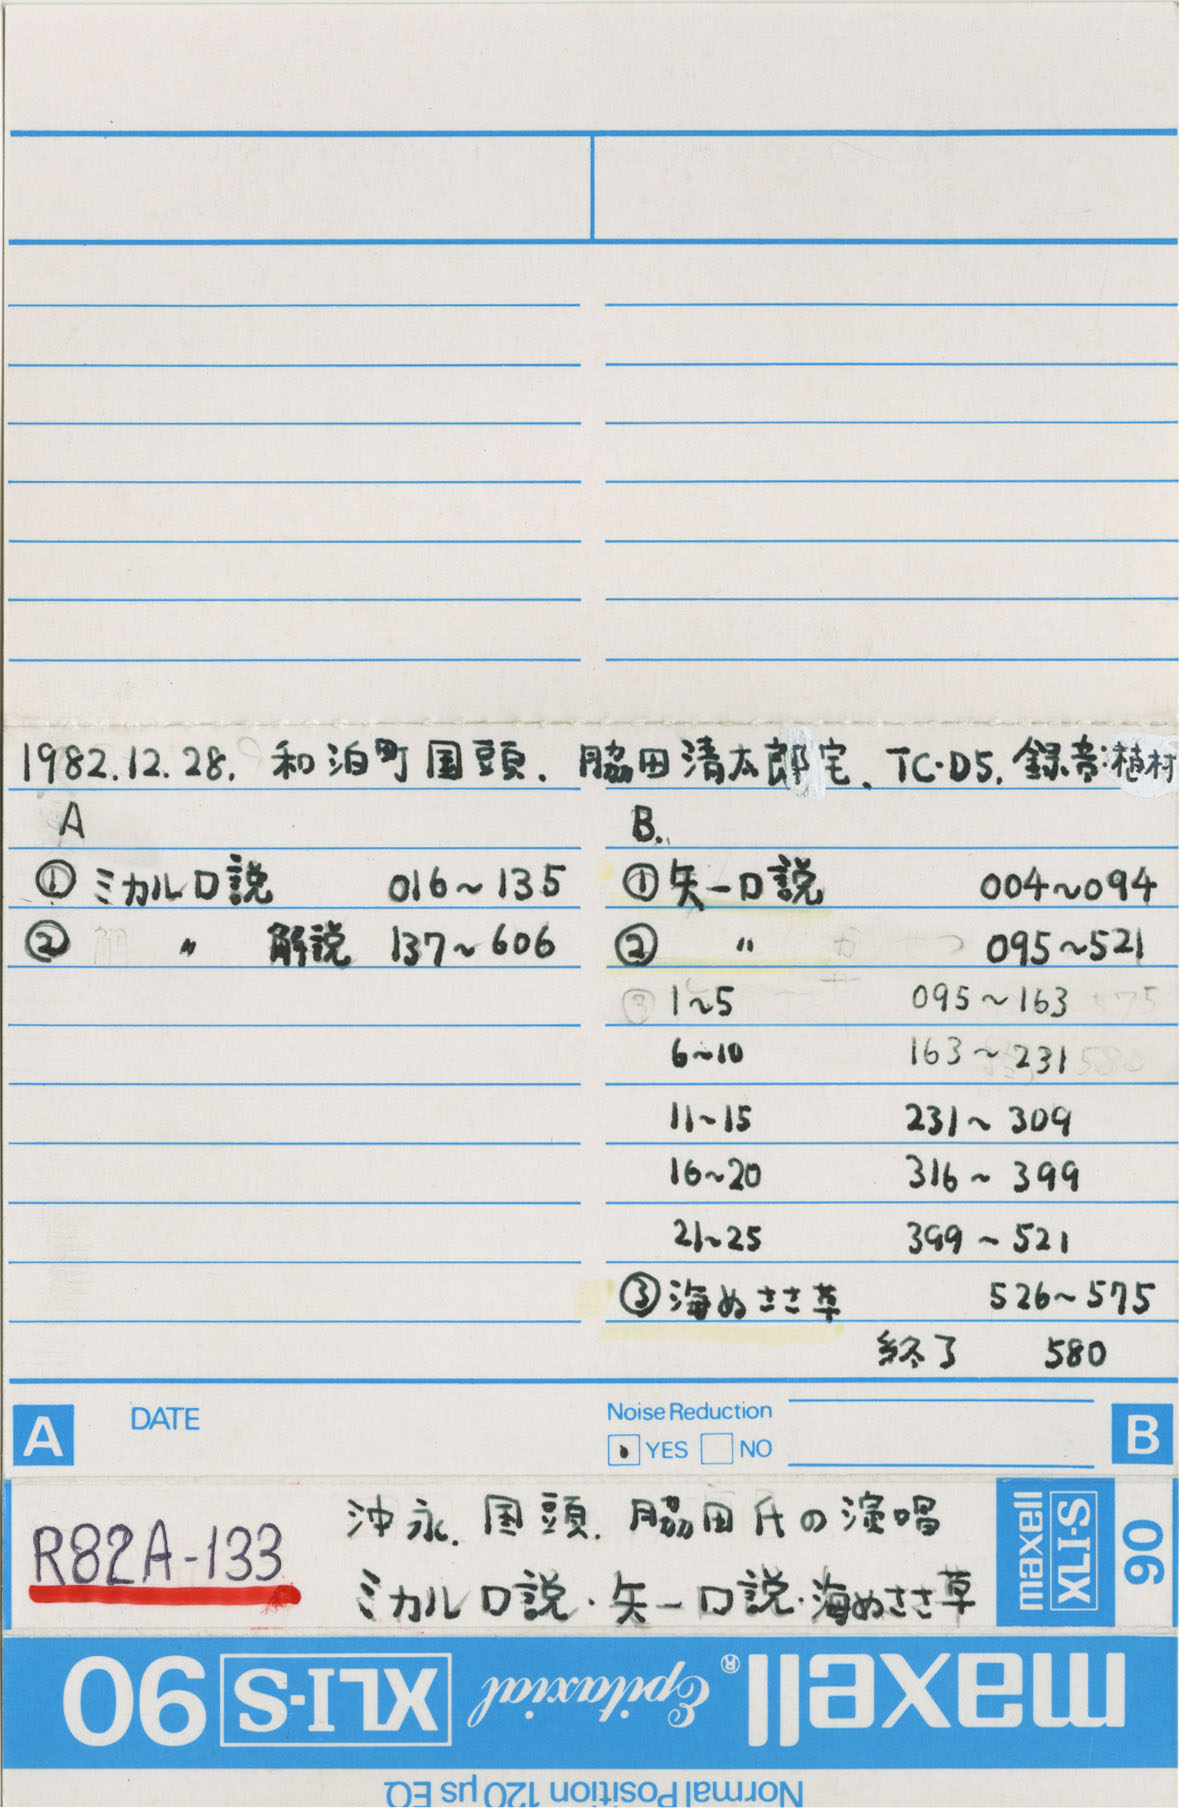 1982.12.28. 和泊町国頭. 脇田清太郎宅. TC-D5. 録音:植村
A
① ミカル口説 016~135
② 〃 解説 137~606
B.
① 矢一口説 004~094
② 〃 095~521
1~5 095~163
6~10 163~231
11~15 231~309
16~20 316~399
21~25 399~521
③ 海ぬささ草 526~575
終了 580
A DATE
Noise Reduction
YES NO
B
R82A-133
沖永. 国頭. 脇田氏の演唱
ミカル口説・矢一口説・海ぬささ草
maxell
XLI-S
90
maxell® Epitaxial XLI-S 90
Normal Position 120 µs EQ